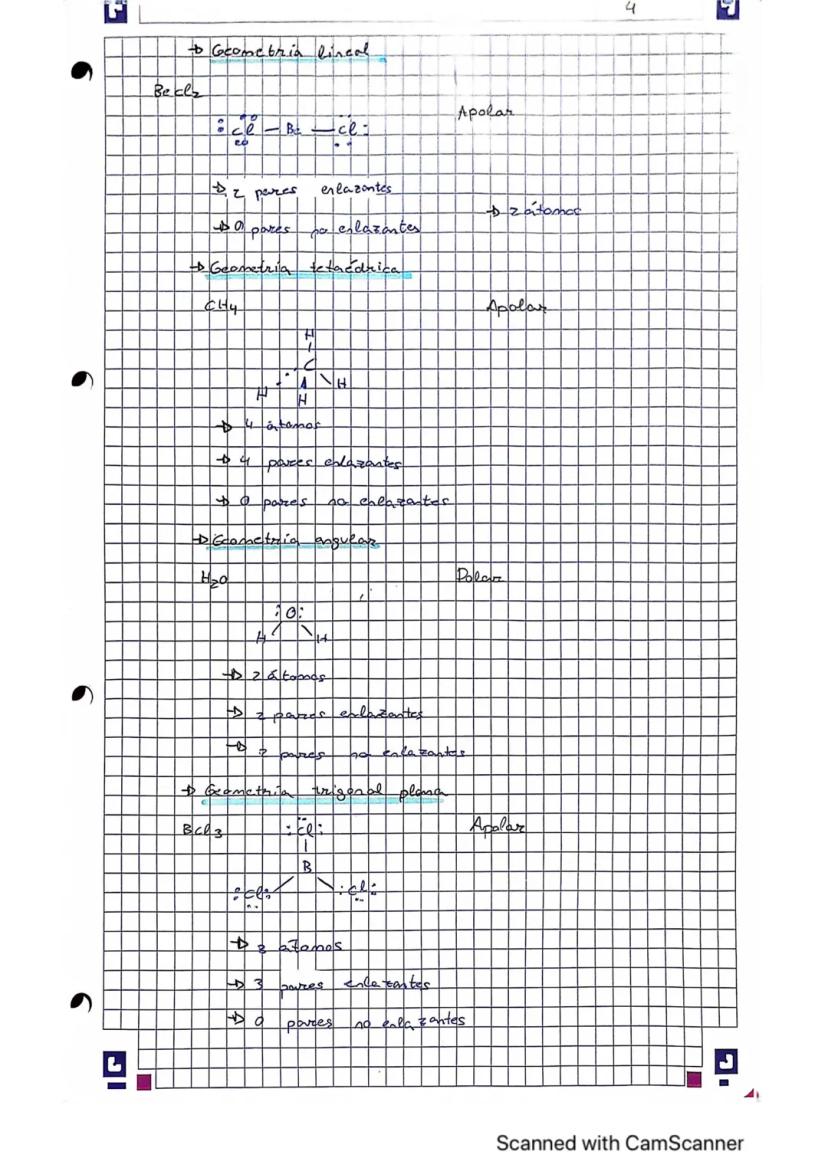 4
→ Geometría lineal
BeCl2
Apolar
:Cl — Be — Cl:
→ 2 pares enlazantes
→ 2 átomos
→ 0 pares no enlazantes
→ Geometría tetaédrica
CH4 Apolar
H
C
H H
H
→ 4 átomos
→ 4 pares enlazantes
→ 0 pares no enlazantes
→ Geometría angular
H2O Polar
:O:
H H
→ 2 átomos
→ 2 pares enlazantes
→ 2 pares no enlazantes
→ Geometría trigonal plana
BCl3 :Cl: Apolar
B
:Cl: :Cl:
→ 3 átomos
→ 3 pares enlazantes
→ 0 pares no enlazantes
Scanned with CamScanner